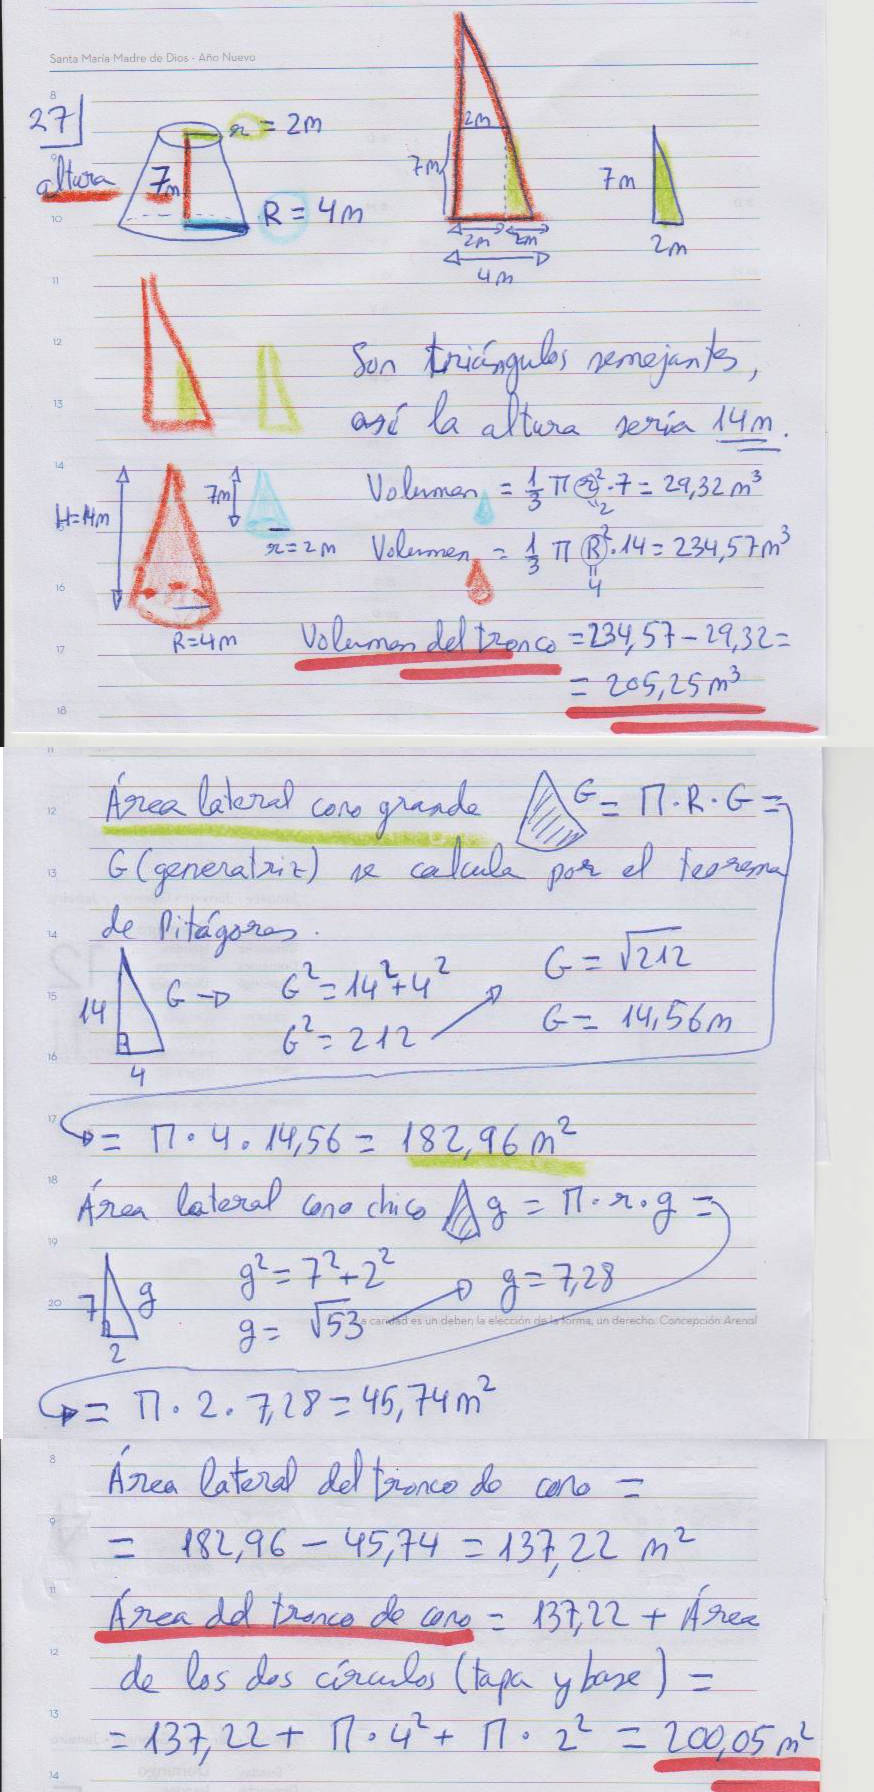 Santa María Madre de Dios - Año Nuevo
27
r = 2m
altura 7m
R = 4m
2m
7m
2m 2m
4m
7m
2m
Son triángulos semejantes,
así la altura sería 14m.
H=14m
7m
r=2m
R=4m
Volumen = 1/3 π r² · 7 = 29,32 m³
2
Volumen = 1/3 π R² · 14 = 234,57 m³
4
Volumen del tronco = 234,57 - 29,32 =
= 205,25 m³
8
9
10
11
12
13
14
15
16
17
18
11
Área lateral cono grande G = Π · R · G =
G (generatriz) se calcula por el teorema
de Pitágoras.
14 G → G² = 14² + 4² G = √212
4 G² = 212 G = 14,56 m
= Π · 4 · 14,56 = 182,96 m²
Área lateral cono chico g = Π · r · g =
7 g g² = 7² + 2² g = 7,28
2 g = √53
a caridad es un deber; la elección de la forma, un derecho. Concepción Arenal
= Π · 2 · 7,28 = 45,74 m²
12
13
14
15
16
17
18
19
20
Área lateral del tronco de cono =
= 182,96 - 45,74 = 137,22 m²
Área del tronco de cono = 137,22 + Área
de los dos círculos (tapa y base) =
= 137,22 + Π · 4² + Π · 2² = 200,05 m²
8
9
11
12
13
14